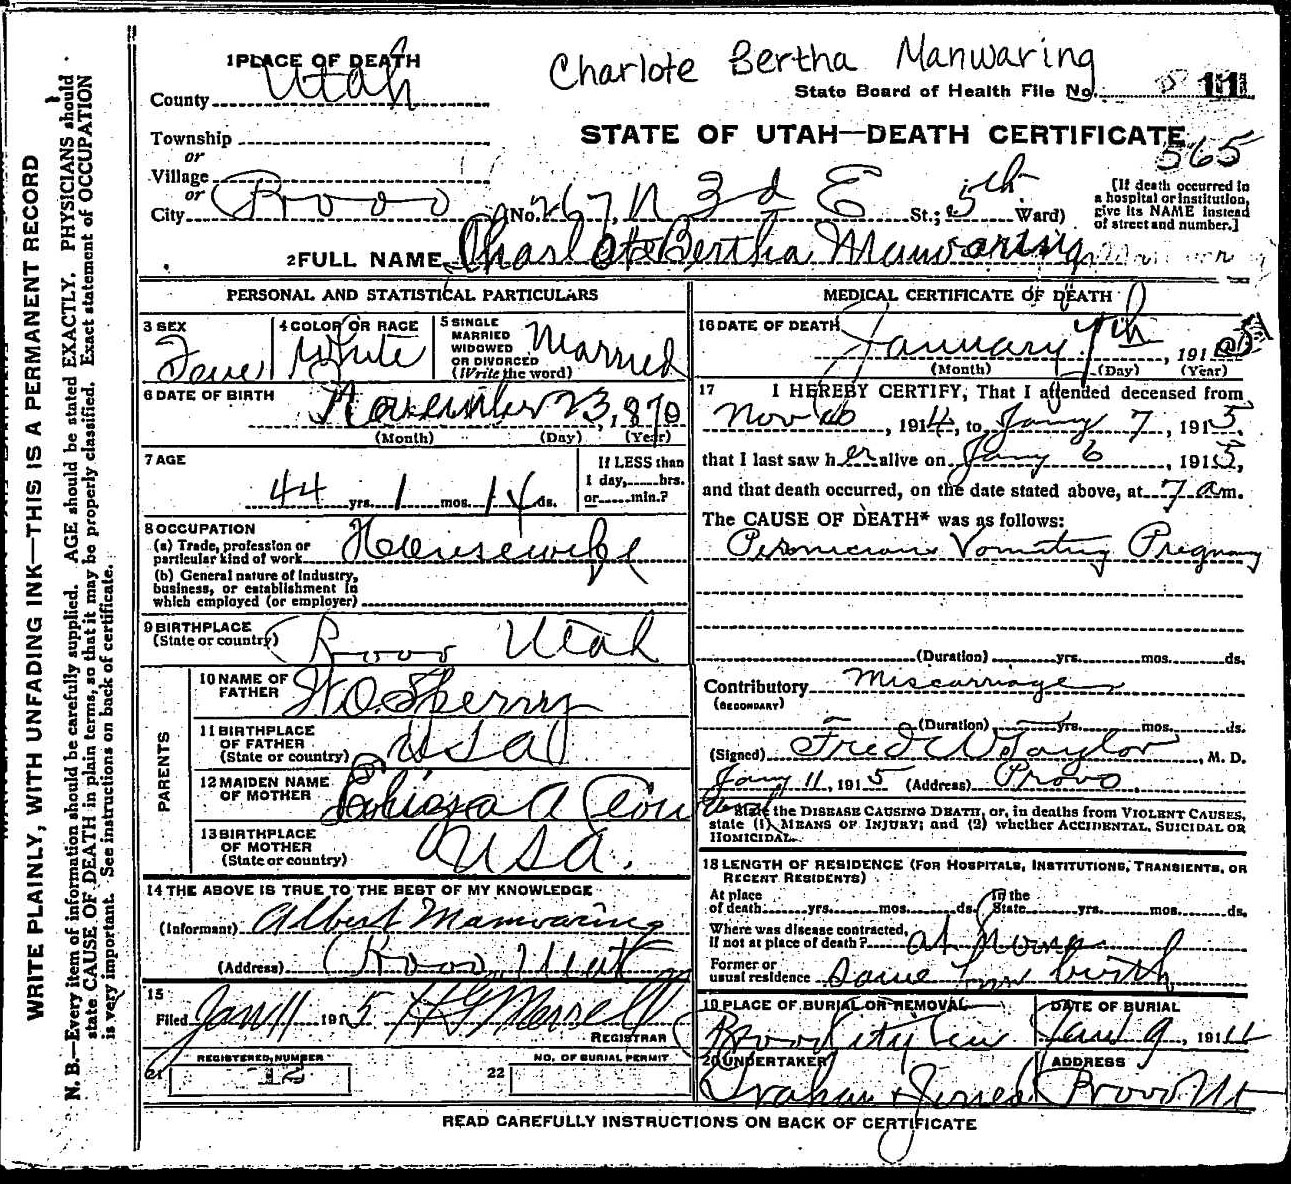 Charlote Bertha Manwaring
1 PLACE OF DEATH
County Utah
State Board of Health File No. 11
STATE OF UTAH—DEATH CERTIFICATE
565
Township
or
Village
or
City Provo No. 267 N 3d E St.; 5th Ward)
[If death occurred in
a hospital or institution,
give its NAME instead
of street and number.]
2 FULL NAME Charlotte Bertha Manwaring
PERSONAL AND STATISTICAL PARTICULARS
3 SEX
Fem
4 COLOR OR RACE
White
5 SINGLE
MARRIED
WIDOWED
OR DIVORCED
(Write the word)
Married
6 DATE OF BIRTH
November 23, 1870
(Month) (Day) (Year)
7 AGE
44 yrs. 1 mos. 14 ds.
If LESS than
1 day, hrs.
or min.?
8 OCCUPATION
(a) Trade, profession or
particular kind of work Housewife
(b) General nature of Industry,
business, or establishment in
which employed (or employer)
9 BIRTHPLACE
(State or country) Provo Utah
PARENTS
10 NAME OF
FATHER Sperry
11 BIRTHPLACE
OF FATHER
(State or country) USA
12 MAIDEN NAME
OF MOTHER A
13 BIRTHPLACE
OF MOTHER
(State or country) USA.
14 THE ABOVE IS TRUE TO THE BEST OF MY KNOWLEDGE
(Informant) Albert Manwaring
(Address) Provo, Utah
15
Filed Jan 11 1915 Merrell
REGISTRAR
REGISTERED NUMBER
21 12
NO. OF BURIAL PERMIT
22
MEDICAL CERTIFICATE OF DEATH
16 DATE OF DEATH
January 7th, 191
(Month) (Day) (Year)
17 I HEREBY CERTIFY, That I attended deceased from
Nov, 1914, to Jany 7, 1915.
that I last saw her alive on Jany 6, 1915,
and that death occurred, on the date stated above, at 7 a m.
The CAUSE OF DEATH* was as follows:
Pernicious Vomiting Pregnancy
(Duration) yrs. mos. ds.
Contributory Miscarriage
(SECONDARY)
(Duration) yrs. mos. ds.
(Signed) Fred W Taylor, M. D.
Jany 11, 1915 (Address) Provo.
State the DISEASE CAUSING DEATH, or, in deaths from VIOLENT CAUSES,
state (1) MEANS OF INJURY; and (2) whether ACCIDENTAL, SUICIDAL OR
HOMICIDAL.
18 LENGTH OF RESIDENCE (FOR HOSPITALS, INSTITUTIONS, TRANSIENTS, OR
RECENT RESIDENTS)
At place
of death yrs. mos. ds.
In the
State yrs. mos. ds.
Where was disease contracted,
if not at place of death? at home
Former or
usual residence same from birth
19 PLACE OF BURIAL OR REMOVAL
Provo City Cem
DATE OF BURIAL
Jan 9, 191
20 UNDERTAKER
Graham & Jones
ADDRESS
Provo Ut
READ CAREFULLY INSTRUCTIONS ON BACK OF CERTIFICATE
WRITE PLAINLY, WITH UNFADING INK—THIS IS A PERMANENT RECORD
N. B.—Every item of information should be carefully supplied. AGE should be stated EXACTLY. PHYSICIANS should
state CAUSE OF DEATH in plain terms, so that it may be properly classified. Exact statement of OCCUPATION
is very important. See instructions on back of certificate.